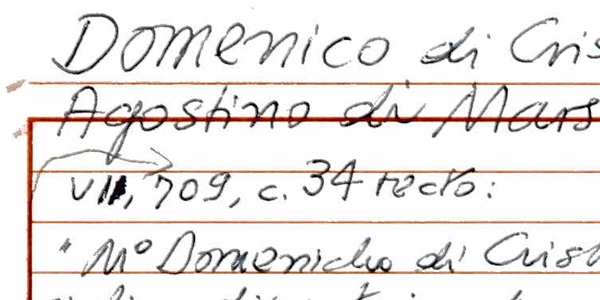 Domenico di Cris
Agostino di Mars
VII, 709, c. 34 recto:
"M° Domenicho di Crist